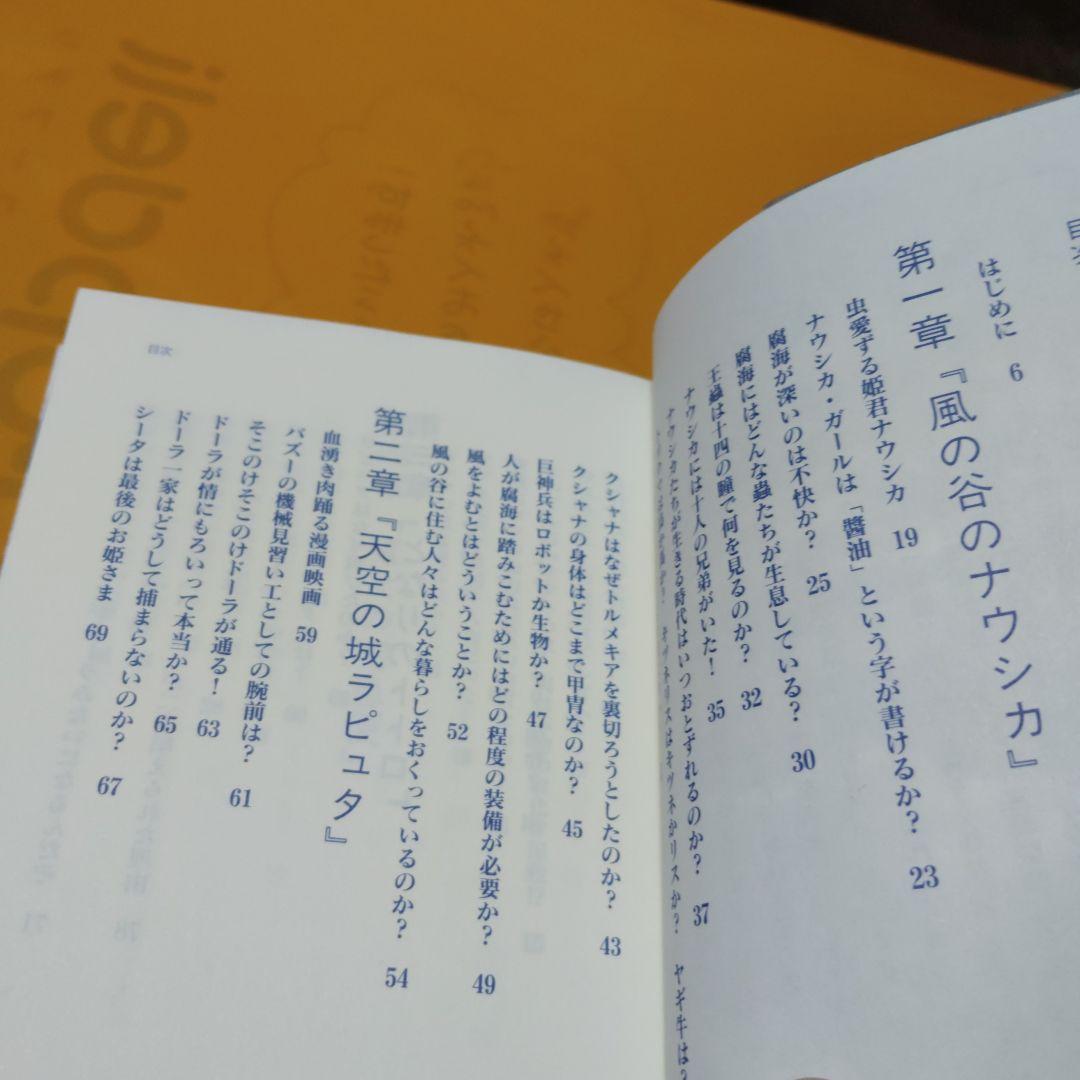 目次
はじめに 6
第一章『風の谷のナウシカ』
虫愛ずる姫君ナウシカ 19
ナウシカ・ガールは「醬油」という字が書けるか? 23
腐海が深いのは不快か? 25
腐海にはどんな蟲たちが生息している? 30
王蟲は十四の瞳で何を見るのか? 32
ナウシカには十人の兄弟がいた! 35
ナウシカたちが生きる時代はいつおとずれるのか? 37
キツネリスはキツネかリスか? ヤギ牛は?
クシャナはなぜトルメキアを裏切ろうとしたのか? 43
クシャナの身体はどこまで甲冑なのか? 45
巨神兵はロボットか生物か? 47
人が腐海に踏みこむためにはどの程度の装備が必要か? 49
風をよむとはどういうことか? 52
風の谷に住む人々はどんな暮らしをおくっているのか? 54
第二章『天空の城ラピュタ』
血湧き肉踊る漫画映画 59
パズーの機械見習い工としての腕前は? 61
そこのけそこのけドーラが通る! 63
ドーラが情にもろいって本当か? 65
ドーラ一家はどうして捕まらないのか? 67
シータは最後のお姫さま 69
目次